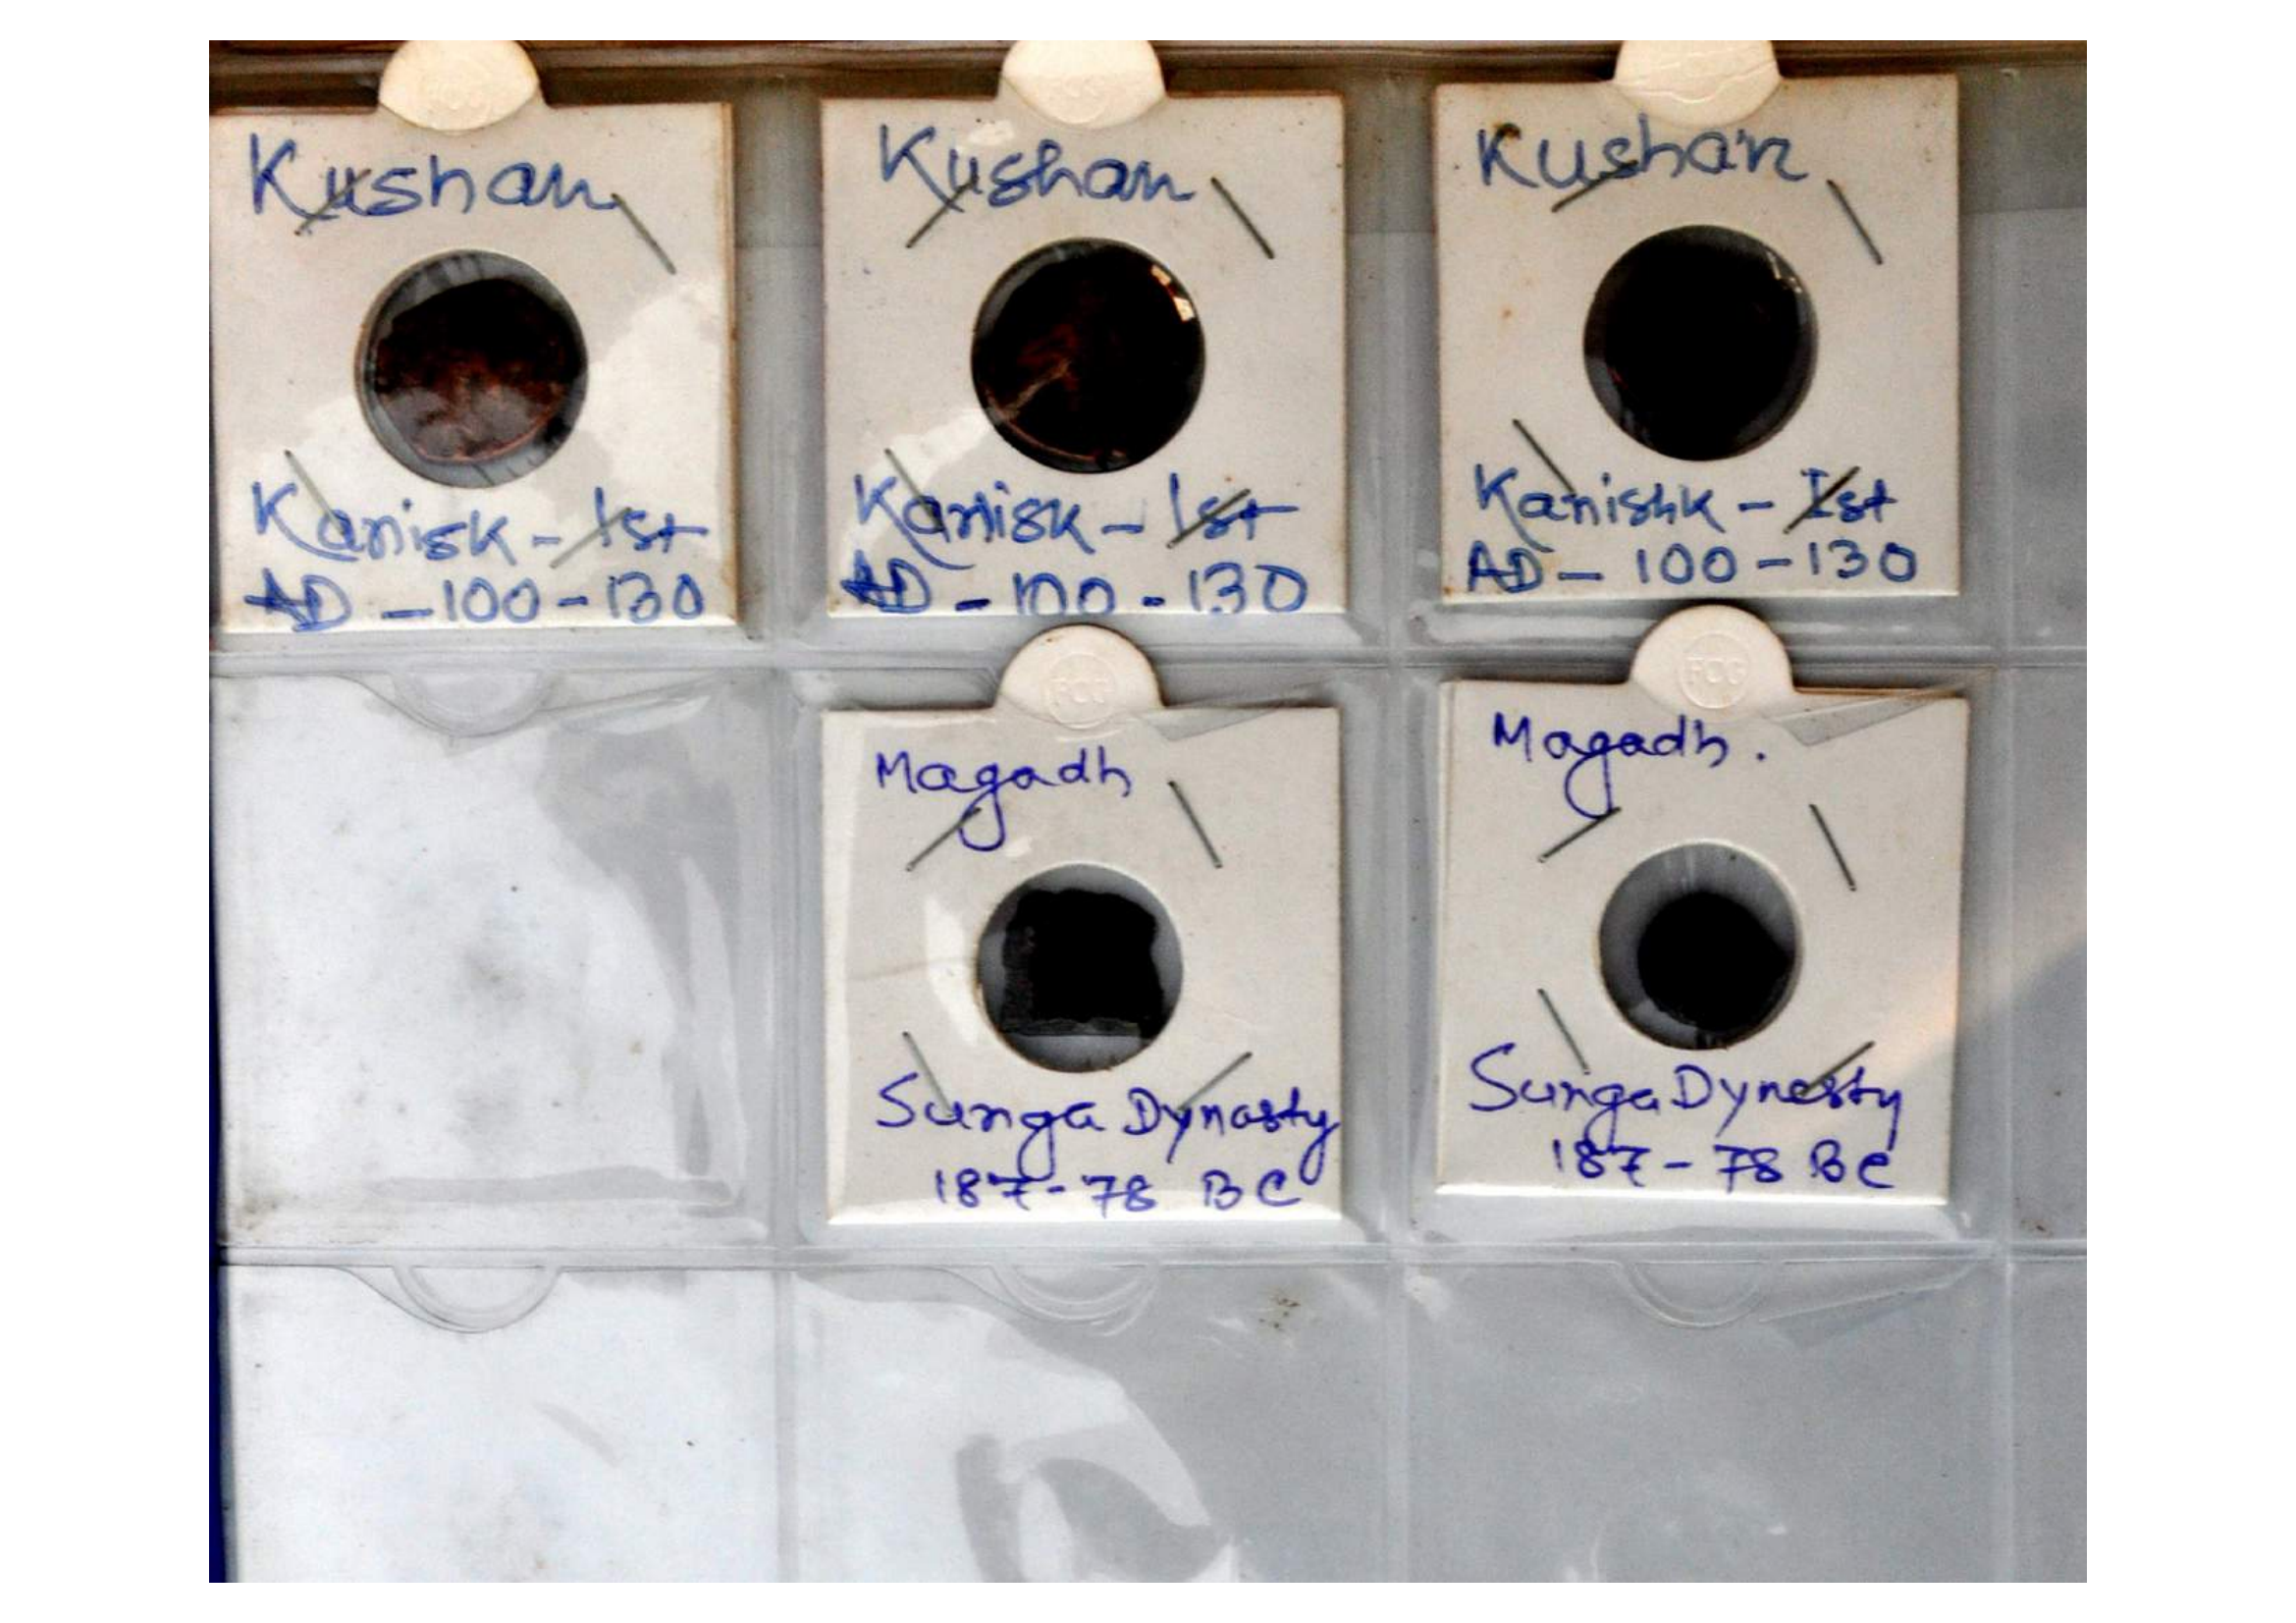 Kushan
Kanisk - Ist
AD - 100 - 130
Kushan
Kanisk - Ist
AD - 100 - 130
Kushan
Kanishk - Ist
AD - 100 - 130
FCG
Magadh
Sunga Dynasty
187 - 78 BC
FCG
Magadh.
Sunga Dynesty
187 - 78 BC